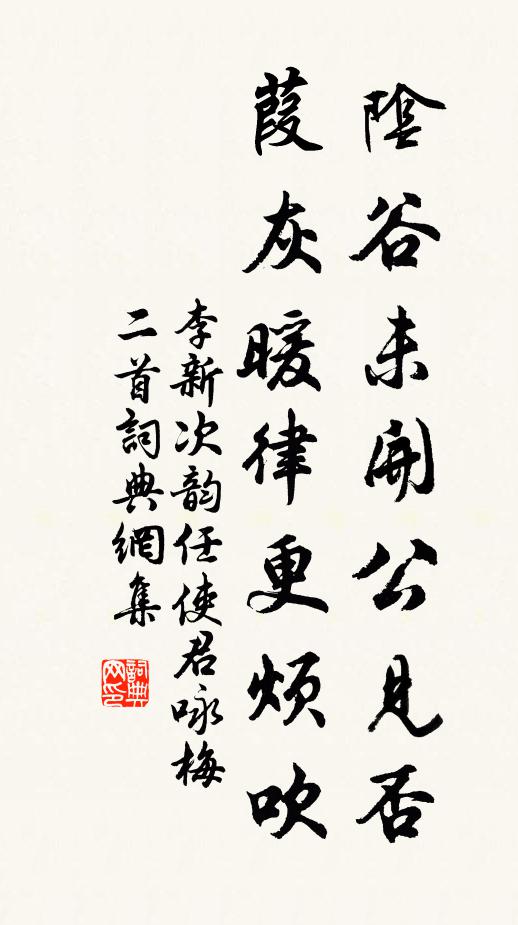 陰谷未開公見否
葭灰暖律更煩吹
李新次韵任使君咏梅
二首詞典網集
詞典网印